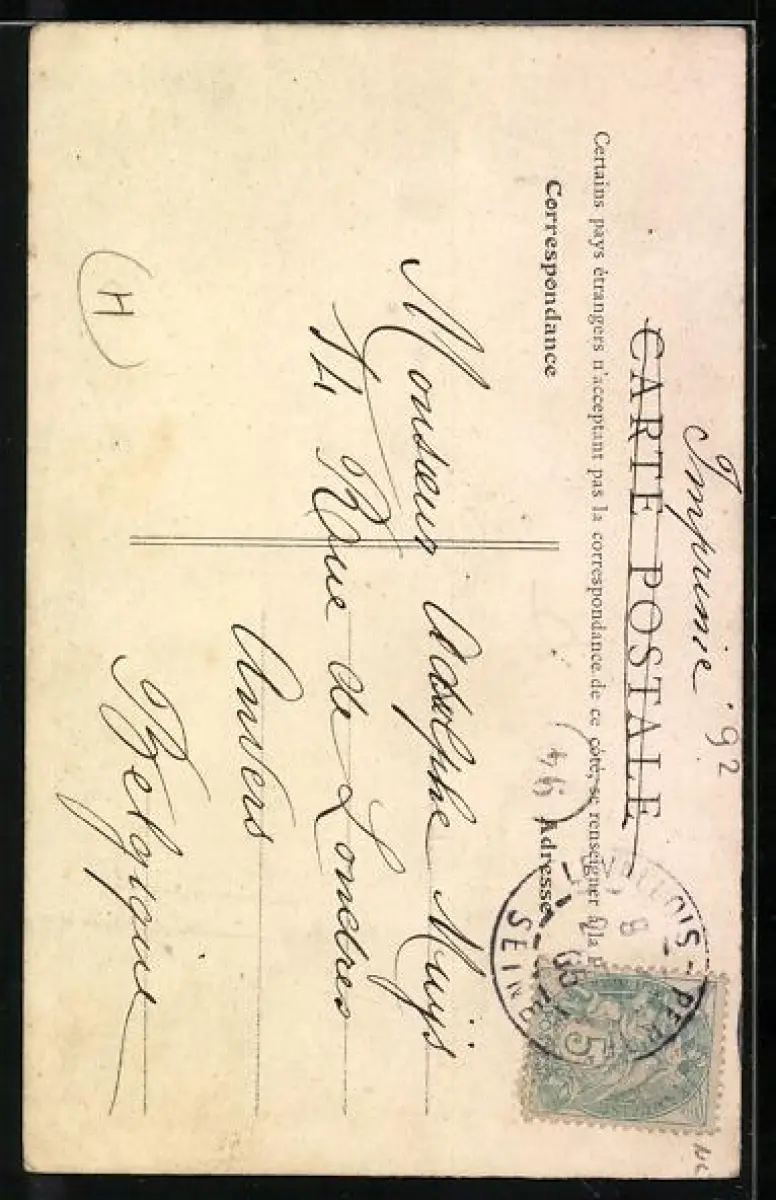 Imprimé '92
CARTE POSTALE
Certains pays étrangers n'acceptant pas la correspondance de ce côté, se renseigner à la p
Correspondance
Adresse
LOIS-PER
8
05
SEINE
5
Monsieur Adolphe Muijs
14 Rue de Londres
Anvers
Belgique
H